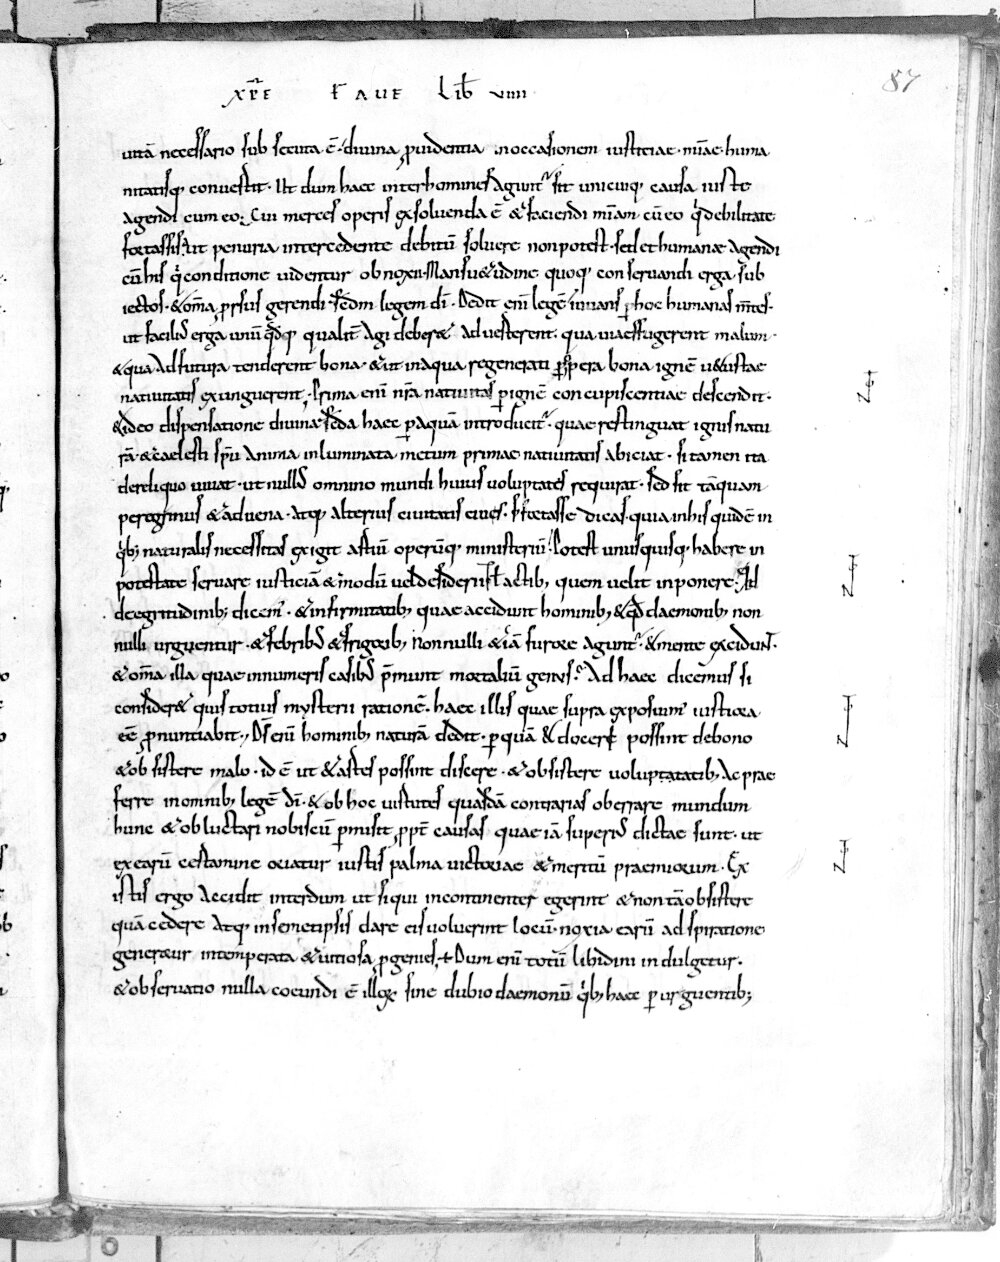 87
xp̄e faue Lib viiii
uitā necessario sub secuta ē. diuina ꝓuidentia inoccasionem iusticiae. mīae. huma
nitatisq; conuertit. Ut dum haec inter homines agunt̃ sit unicuiq; causa iuste
agendi cum eo; Cui merces operis exsoluenda ē & faciendi mīam cū eo q̇ debilitate
fortassis ut penuria intercedente debitū soluere non potest. sed et humanae agendi
cū his q̇ conditione uidentur obnoxii. Mansu&udine quoq; conseruandi erga sub
iectos. & om̄a ꝓrsus gerendi scdm legem dī. Dedit enī legē iuuans ꝑ hoc humanas m̄tes.
ut facili' erga unū q̄dq; qualit̃ agi deber& aduerterent. qua uia effugerent malum.
& qua ad futura tenderent bona. & ut in aqua regenerati ꝑ opera bona ignē u&ustae
natiuitatis exinguerent. Prima enī nr̄a natiuitas ꝑ ignē concupiscentiae descendit.
& ideo dispensatione diuina scda haec ꝑ aquā introducit̃. quae restinguat ignis natu
rā. & caelesti sp̄u anima inluminata metum primae natiuitatis abiciat. si tamen ita
de reliquo uiuat. ut null' omnino mundi huius uoluptates requirat. Sed sit tāquam
peregrinus & aduena. atq; alterius ciuitatis ciues. Sꝫ fortasse dicas. quia in his quidē in
q̇b; naturalis necessitas exigit astū operūq; ministeriū. Potest unusquisq; habere in
potestate seruare iusticiā & modū uel desiderii ł actib; quem uelit inponere. Ad
de egritudinib; dicem'. & infirmitatib; quae accidunt hominib; & qd daemonib; non
nulli urguentur. & febrib' & frigorib; Nonnulli & iā furore agunt̃. & mente excidunt.
& om̄a illa quae innumeris casib' p̄munt mortaliū genus. Ad haec dicemus si
consider& quis totius mysterii rationē. haec illis quae supra exposuim' iustiora
eē ꝓnuntiabit. Ds enī hominib; naturā dedit. ꝑ quā & doceri possint de bono
& obsistere malo. id ē ut & artes possint discere. & obsistere uoluptatatib; Ac prae
ferre in omnib; legē dī. & ob hoc uirtutes quasdā contrarias oberrare mundum
hunc & obluctari nobiscū ꝑmisit ꝓpt̃ causas quae iā superi' dictae sunt. ut
ex earū certamine oriatur iustis palma uictoriae & meritū praemiorum. Ex
istis ergo accidit interdum ut si qui incontinenter egerint & non tā obsistere
quā cedere atq; in semetipsis dare eis uoluerint locū. noxia earū adspiratione
generetur intemperata & uitiosa ꝓgenies. Dum enī totū libidini indulgetur.
& obseruatio nulla cocundi ē illor sine dubio daemonū q̇b; haec ꝑ urguentib;